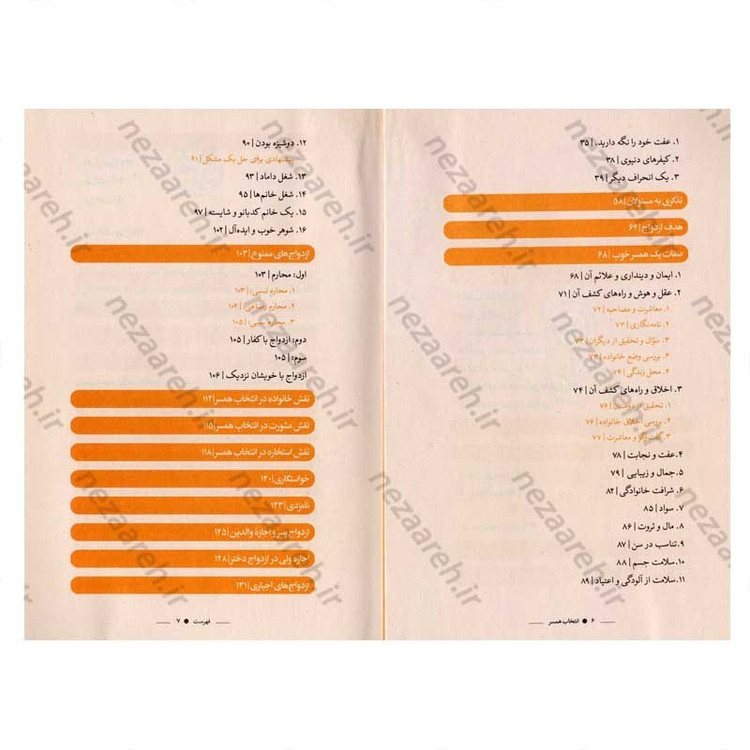 ۱. عفت خود را نگه دارید. | ۳۵
۲. کیفرهای دنیوی | ۳۸
۳. یک انحراف دیگر | ۳۹
تذکری به مسئولان | ۵۸
هدف ازدواج | ۶۲
صفات یک همسر خوب | ۶۸
۱. ایمان و دینداری و علائم آن | ۶۸
۲. عقل و هوش و راه‌های کشف آن | ۷۱
۱. معاشرت و مصاحبه | ۷۲
۲. نامه‌نگاری | ۷۳
۳. سؤال و تحقیق از دیگران | ۷۳
۴. بررسی وضع خانواده | ۷۳
۵. محل زندگی | ۷۴
۳. اخلاق و راه‌های کشف آن | ۷۴
۱. تحقیق از دوستان | ۷۶
۲. بررسی اخلاق خانواده | ۷۶
۳. گفت‌وگو و معاشرت | ۷۷
۴. عفت و نجابت | ۷۸
۵. جمال و زیبایی | ۷۹
۶. شرافت خانوادگی | ۸۲
۷. سواد | ۸۵
۸. مال و ثروت | ۸۶
۹. تناسب در سن | ۸۷
۱۰. سلامت جسم | ۸۸
۱۱. سلامت از آلودگی و اعتیاد | ۸۹
۶ ● انتخاب همسر
۱۲. دوشیزه بودن | ۹۰
پیشنهادی برای حل یک مشکل | ۹۱
۱۳. شغل داماد | ۹۳
۱۴. شغل خانم‌ها | ۹۵
۱۵. یک خانم کدبانو و شایسته | ۹۷
۱۶. شوهر خوب و ایده‌آل | ۱۰۲
ازدواج‌های ممنوع | ۱۰۳
اول: محارم | ۱۰۳
۱. محارم نسبی: | ۱۰۳
۲. محارم رضاعی: | ۱۰۴
۳. محارم سببی: | ۱۰۵
دوم: ازدواج با کفار | ۱۰۵
سوم: | ۱۰۵
ازدواج با خویشان نزدیک | ۱۰۶
نقش خانواده در انتخاب همسر | ۱۱۲
نقش مشورت در انتخاب همسر | ۱۱۵
نقش استخاره در انتخاب همسر | ۱۱۸
خواستگاری | ۱۲۰
نامزدی | ۱۲۳
ازدواج پسر و اجازهٔ والدین | ۱۲۵
اجازه ولی در ازدواج دختر | ۱۲۸
ازدواج‌های اجباری | ۱۳۱
فهرست ● ۷
nezaareh.ir